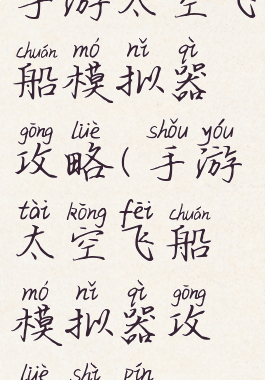 手游太空飞
chuán mó nǐ qì
船模拟器
gōng lüè shǒu yóu
攻略(手游
tài kōng fēi chuán
太空飞船
mó nǐ qì gōng
模拟器攻
lüè shì pín